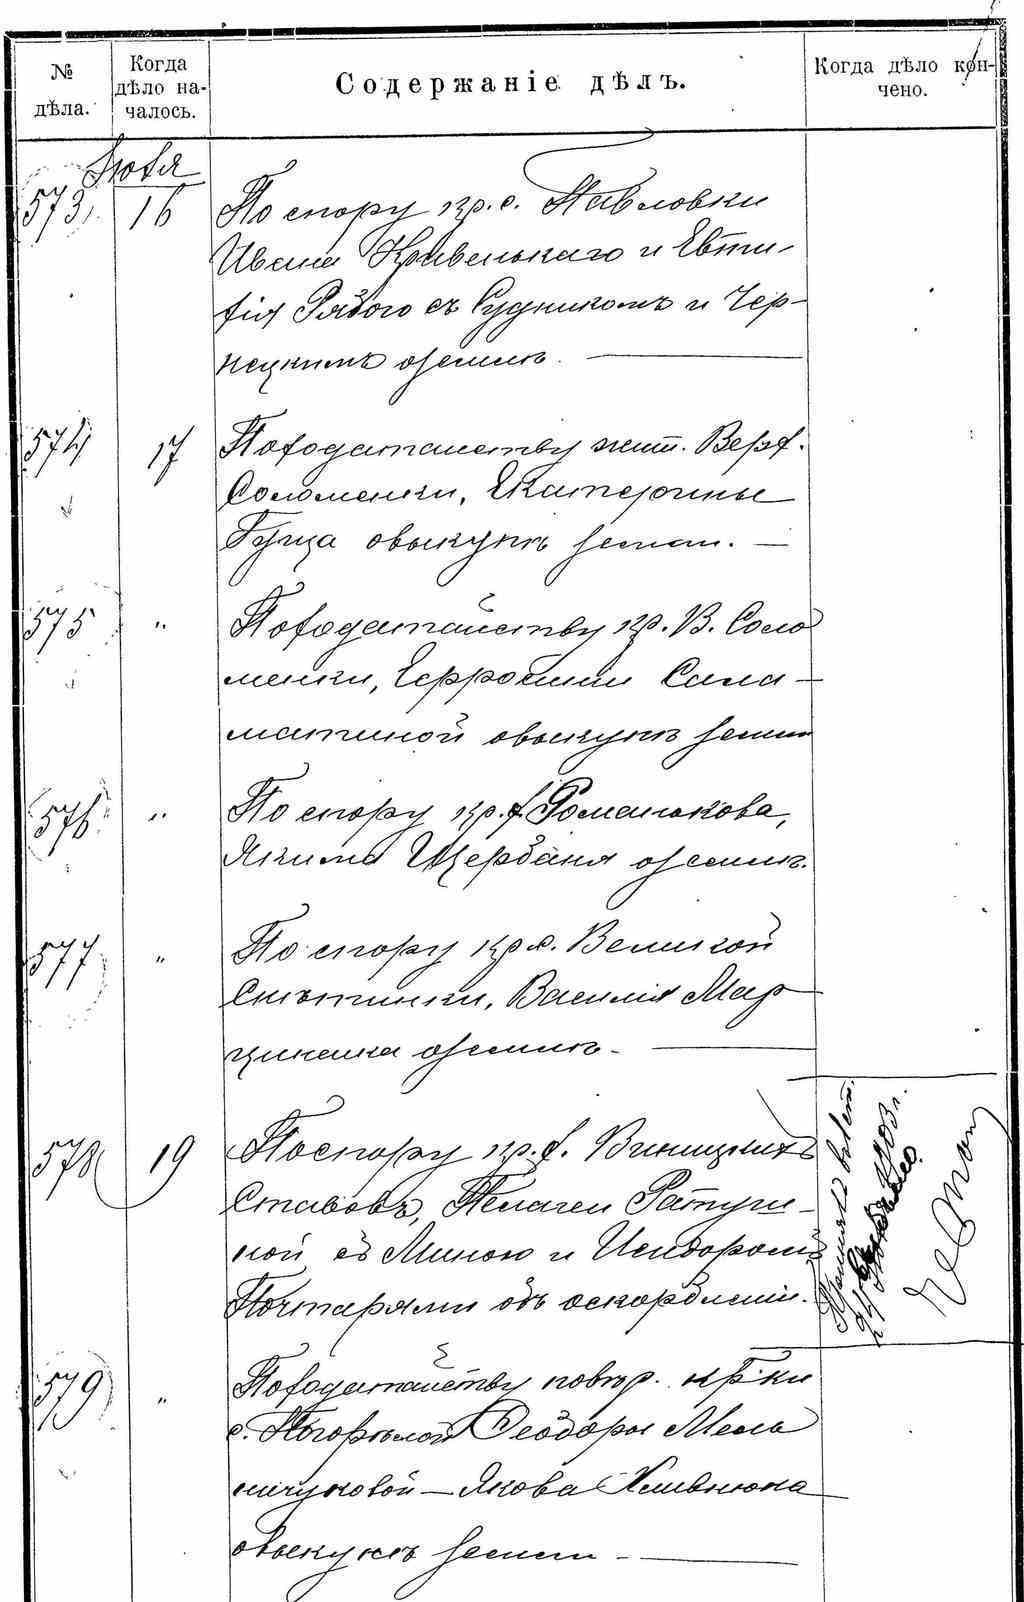 № дѣла.
Когда дѣло началось.
Содержаніе дѣлъ.
Когда дѣло кончено.
Июля
573. 16 По спору кр. с. Павловки
Ивана Кривенькаго и Евти-
фія Рябого съ Судникомъ и Чер-
нецкимъ о землѣ.
574 17 По ходатайству жит. Верх.
Соломенки, Екатерины
Гуща о выкупѣ земли.
575 " По ходатайству кр. В. Соло
менки, Сала-
матиной о выкупѣ земли
576. " По спору кр. х. Романькова,
Якима Щербаня о землѣ.
577 " По спору кр. с. Великой
Снѣтинки, Василія Мар
о землѣ.
578 19 По спору кр. с. Винницкихъ
Ставовъ, Пелагеи
ной съ Миною и Исидоромъ
Почтарями объ оскорбленіи.
1903 г.
579 " По ходатайству повѣр. кр-ки
с. Погорѣлой Ѳеодоры Мель
ничуковой — Якова Хливнюка
о выкупѣ земли